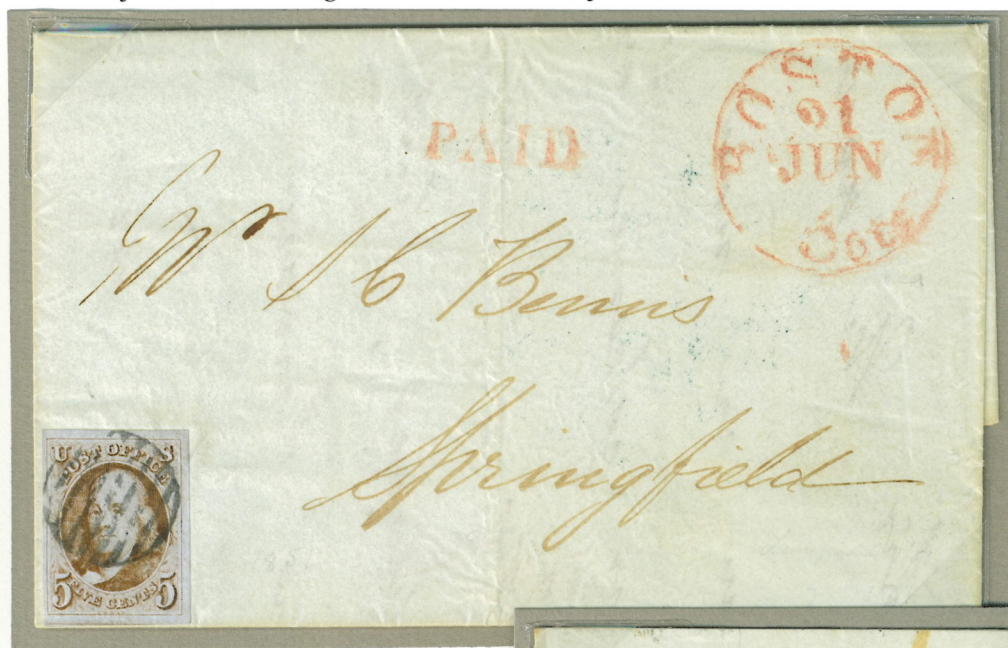 PAID
BOSTON
21
JUN
5 cts
Mr S C Bemis
Springfield
U S
POST OFFICE
5 FIVE CENTS 5